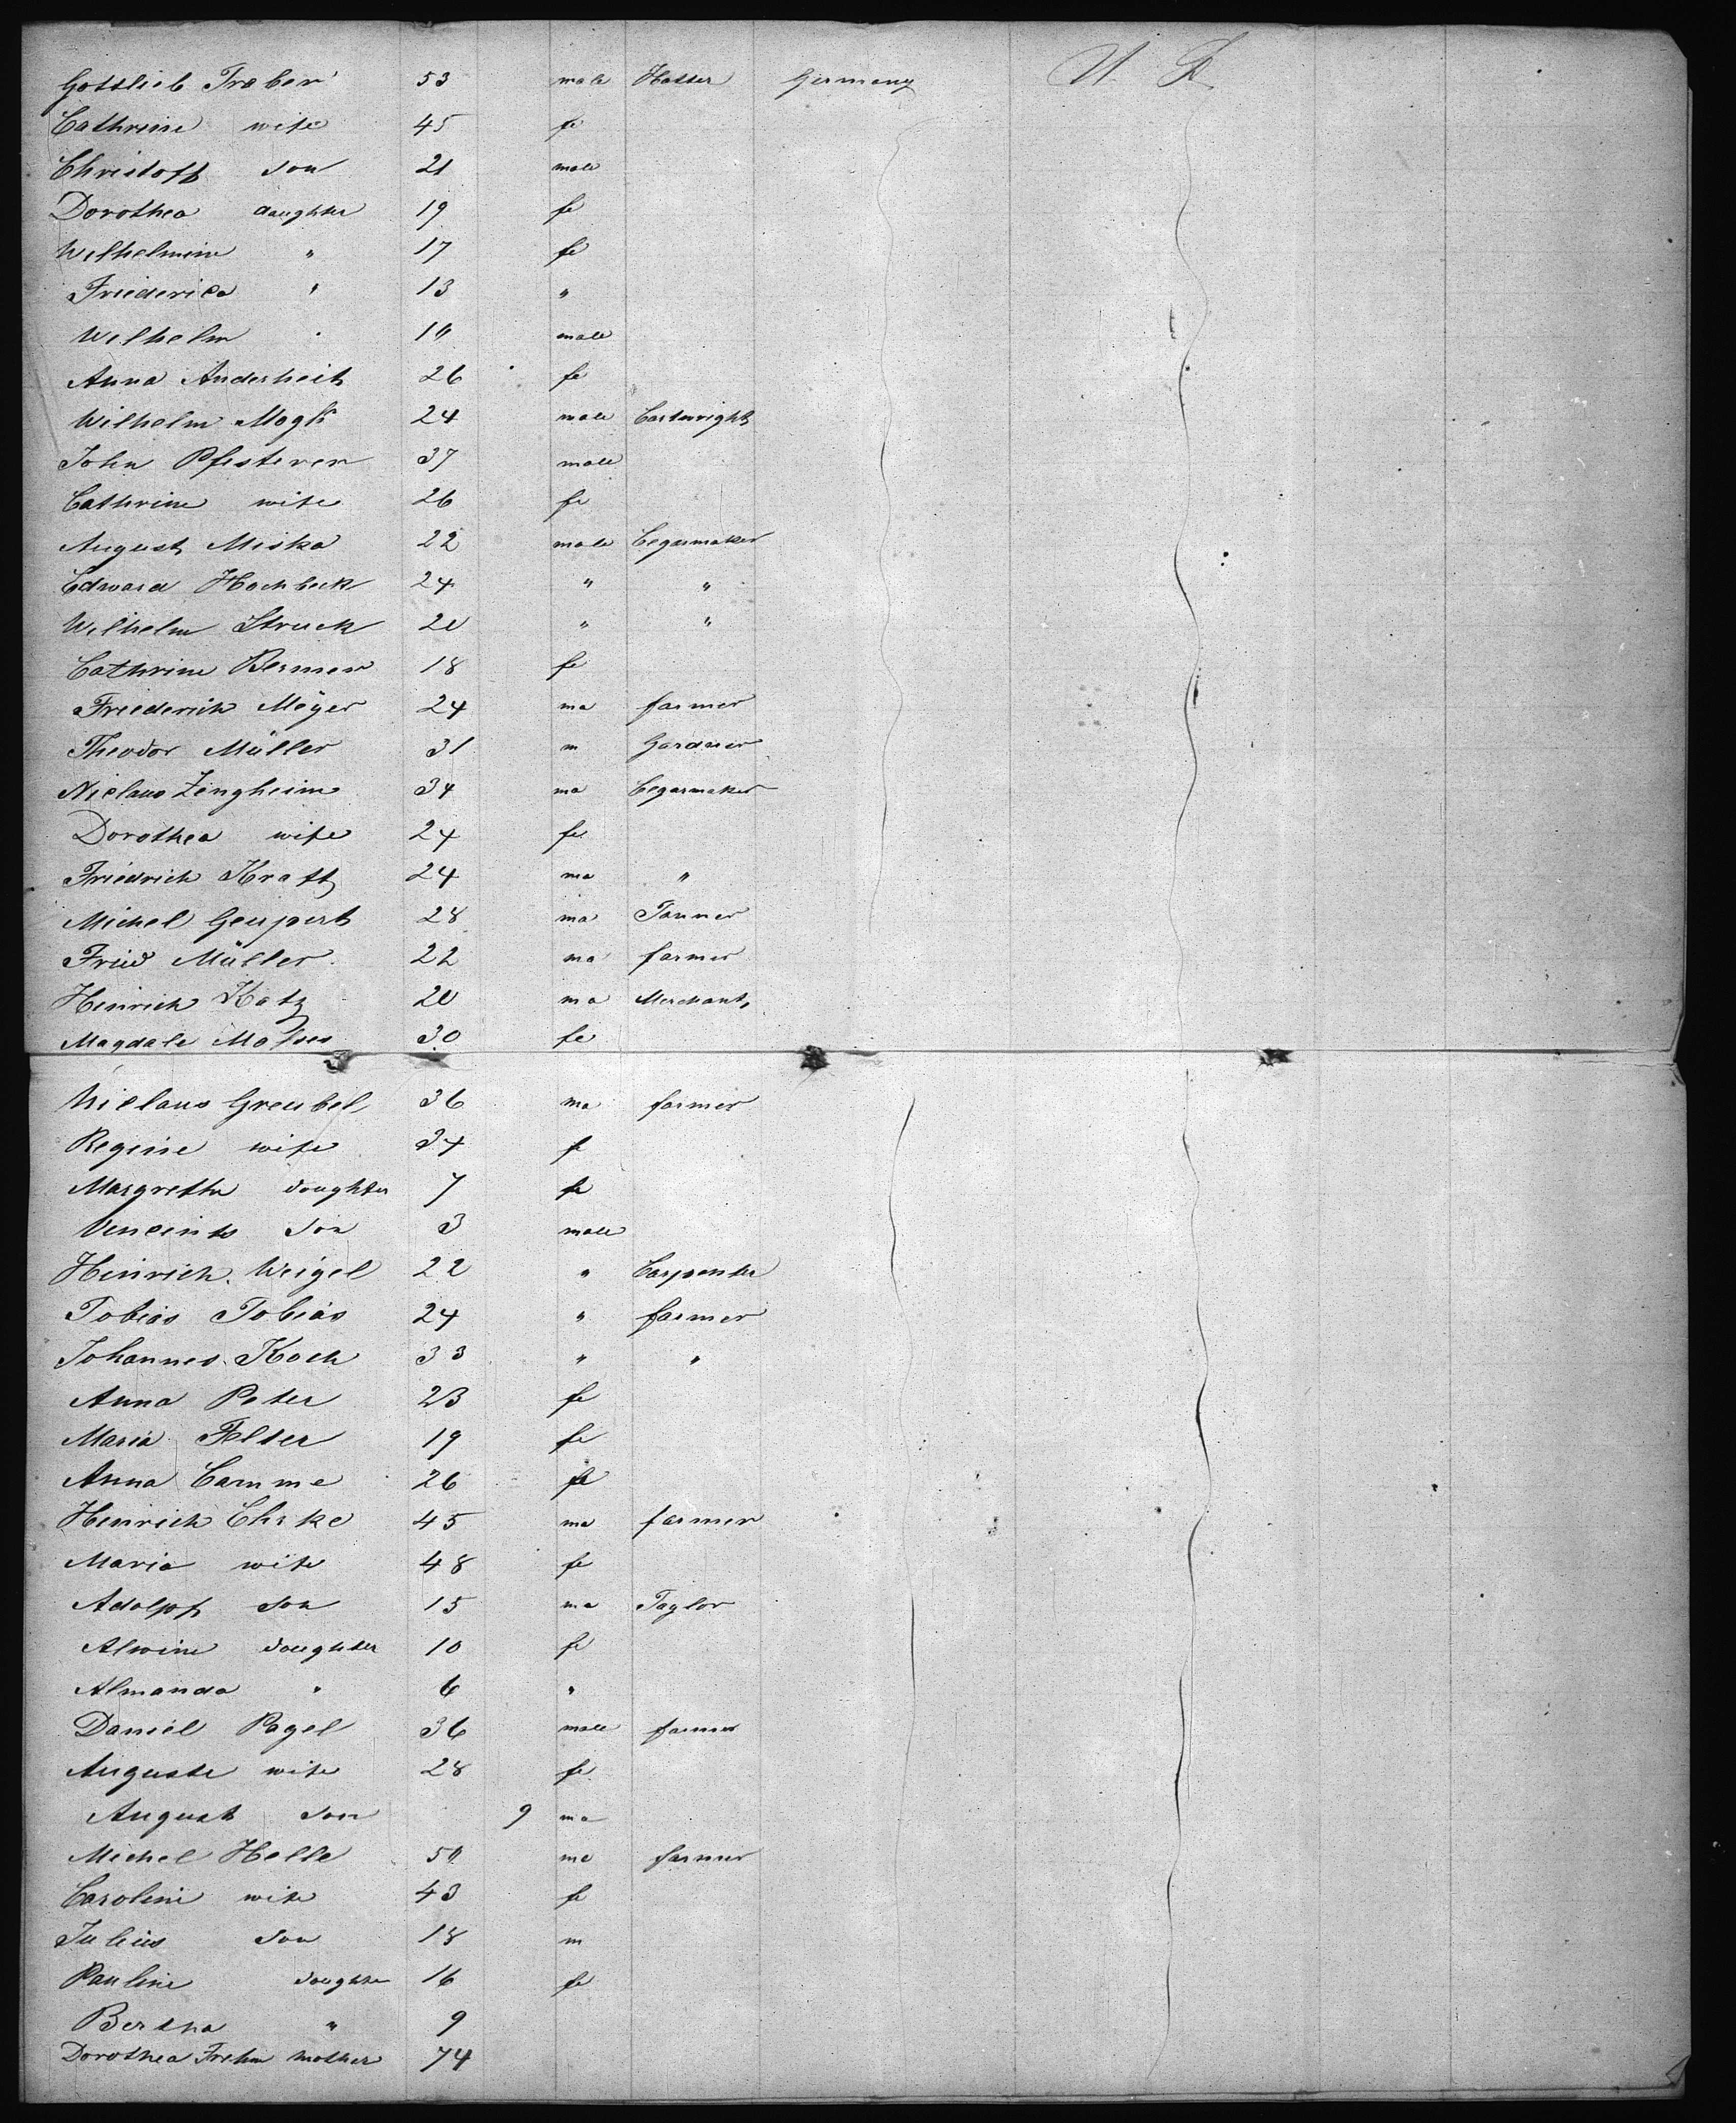 Gottlieb Traber 53 male Hatter Germany U S
Cathrine wife 45 fe
Christoff son 21 male
Dorothea daughter 19 fe
Wilhelmine " 17 fe
Friederica " 13 "
Wilhelm 10 male
Anna Anderheit 26 fe
Wilhelm 24 male Cartwright
John Pfisterer 37 male
Cathrine wife 26 fe
August Miska 22 male Cegarmaker
Edward Hochbeck 24 " "
Wilhelm Struck 20 " "
Cathrine Bermer 18 fe
Friederich Meÿer 24 ma farmer
Theodor Müller 31 m Gardner
Niclaus Zengheim 34 ma Cegarmaker
Dorothea wife 24 fe
Friedrich Kraft 24 ma "
Michel Geupert 28 ma Tanner
Fried Müller 22 ma farmer
Heinrich Katz 20 ma Merchant
Magdale 30 fe
Niclaus Greubel 36 ma farmer
Regine wife 34 fe
Margretha doughter 7 fe
Vencents son 3 male
Heinrich Weigel 22 " Carpenter
Tobias Tobias 24 " farmer
Johannes Koch 33 " "
Anna Peter 23 fe
Maria Felter 19 fe
Anna Camme 26 fe
Heinrich 45 ma farmer
Maria wife 48 fe
Adolpf son 15 ma Taylor
Alwine doughter 10 fe
Almanda " 6 "
Daniel Pagel 36 male farmer
Auguste wife 28 fe
August son 9 ma
Michel Helle 50 ma farmer
Caroline wife 43 fe
Julius son 18 m
Pauline doughter 16 fe
Bertha " 9
Dorothea mother 74